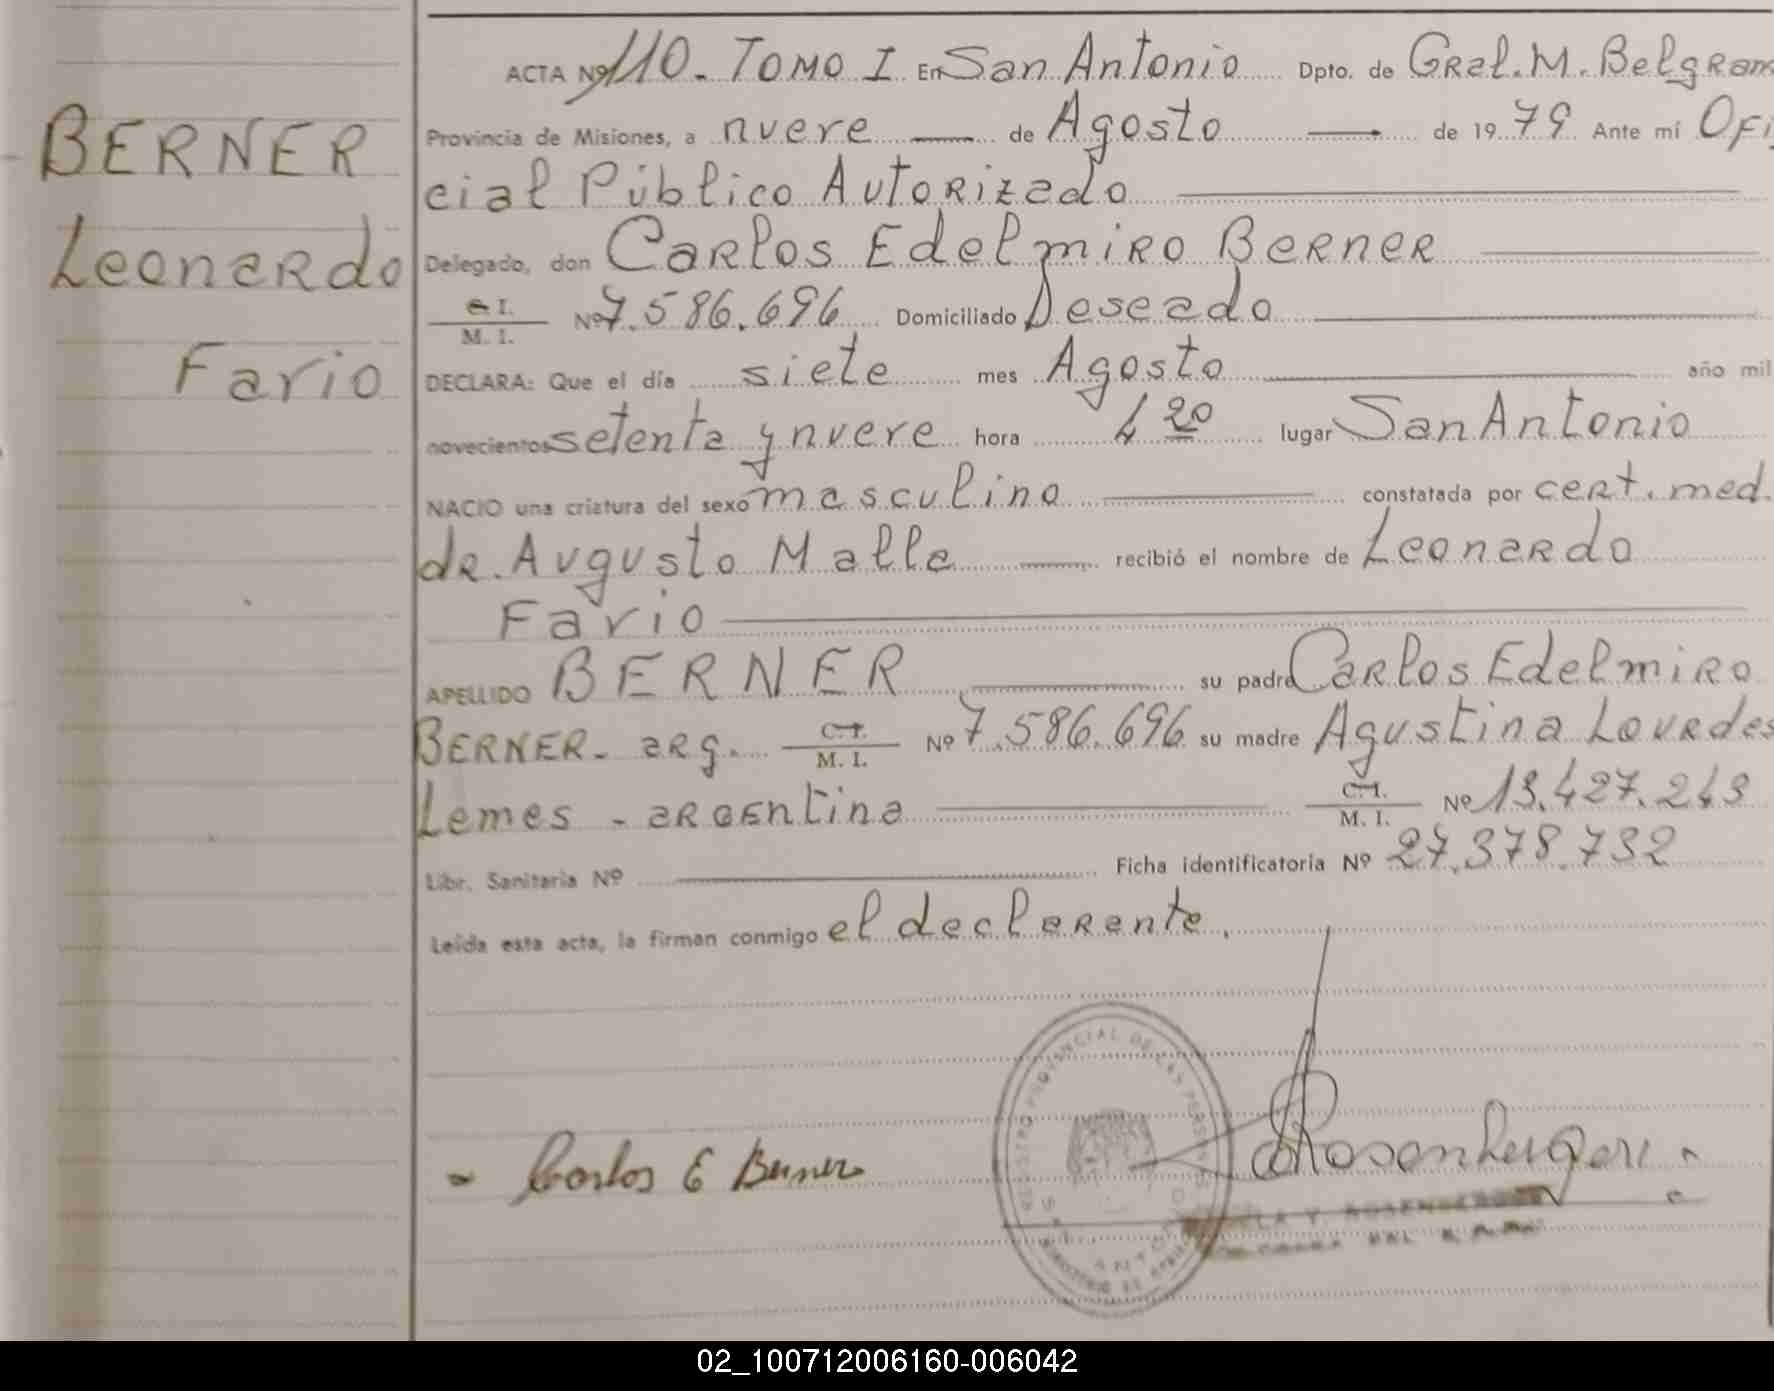 BERNER
Leonardo
Fario
ACTA Nº 110. TOMO I En San Antonio Dpto. de Gral. M. Belgran
Provincia de Misiones, a nueve de Agosto de 1979 Ante mí Ofi
cial Público Autorizado
Delegado, don Carlos Edelmiro Berner
C. I.
M. I. Nº 7.586.696 Domiciliado Deseado
DECLARA: Que el día siete mes Agosto año mil
novecientos setenta y nueve hora 4 20 lugar San Antonio
NACIO una criatura del sexo masculino constatada por cert. med.
dr. Augusto Malle recibió el nombre de Leonardo
Fario
APELLIDO BERNER su padre Carlos Edelmiro
BERNER - arg. C. I. M. I. Nº 7.586.696 su madre Agustina Lourdes
Lemes - argentina C. I. M. I. Nº 13.427.243
Libr. Sanitaria Nº Ficha identificatoria Nº 27.378.732
Leída esta acta, la firman conmigo el declarante.
REGISTRO PROVINCIAL DE LAS PERSONAS
SAN ANTONIO
MINISTERIO DE
- Carlos E Berner
02_100712006160-006042